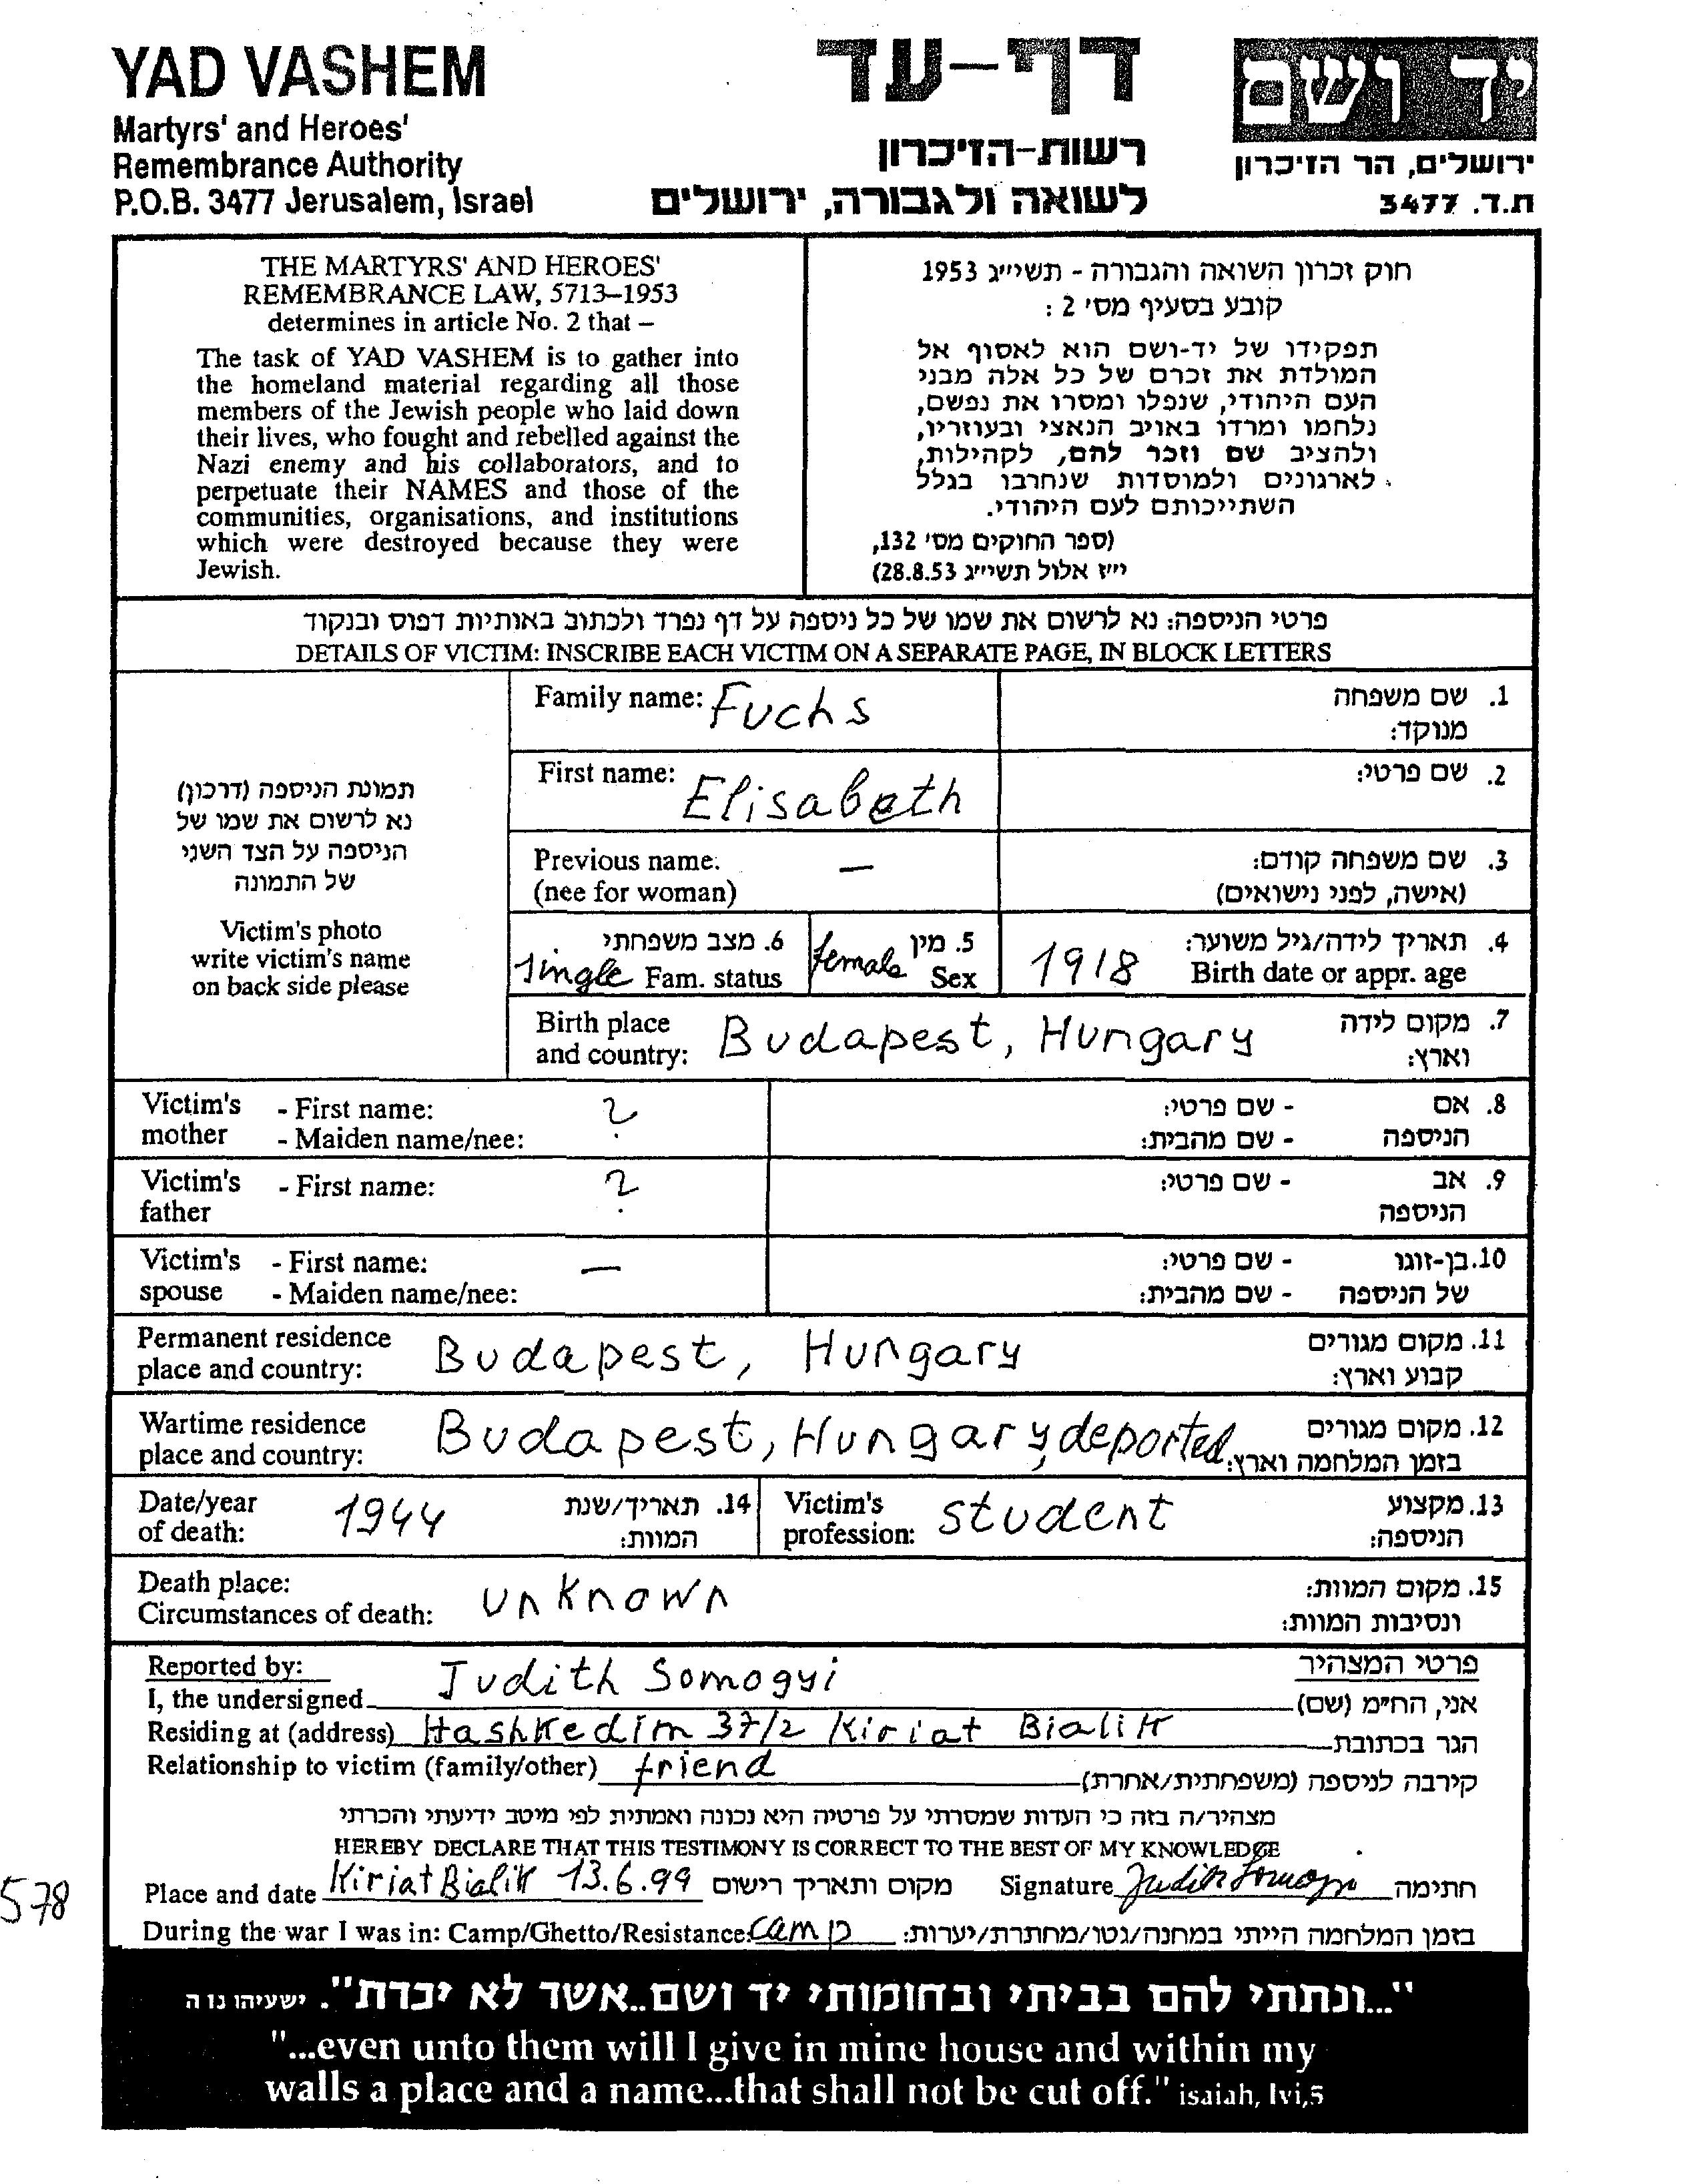 YAD VASHEM
Martyrs' and Heroes'
Remembrance Authority
P.O.B. 3477 Jerusalem, Israel
דף-עד
רשות-הזיכרון
לשואה ולגבורה, ירושלים
יד ושם
ירושלים, הר הזיכרון
ת.ד. 3477
THE MARTYRS' AND HEROES'
REMEMBRANCE LAW, 5713–1953
determines in article No. 2 that –
The task of YAD VASHEM is to gather into
the homeland material regarding all those
members of the Jewish people who laid down
their lives, who fought and rebelled against the
Nazi enemy and his collaborators, and to
perpetuate their NAMES and those of the
communities, organisations, and institutions
which were destroyed because they were
Jewish.
חוק זכרון השואה והגבורה - תשי״ג 1953
קובע בסעיף מס׳ 2 :
תפקידו של יד-ושם הוא לאסוף אל
המולדת את זכרם של כל אלה מבני
העם היהודי, שנפלו ומסרו את נפשם,
נלחמו ומרדו באויב הנאצי ובעוזריו,
ולהציב שם וזכר להם, לקהילות,
לארגונים ולמוסדות שנחרבו בגלל
השתייכותם לעם היהודי.
(ספר החוקים מס׳ 132,
י״ז אלול תשי״ג 28.8.53)
פרטי הניספה: נא לרשום את שמו של כל ניספה על דף נפרד ולכתוב באותיות דפוס ובנקוד
DETAILS OF VICTIM: INSCRIBE EACH VICTIM ON A SEPARATE PAGE, IN BLOCK LETTERS
תמונת הניספה (דרכון)
נא לרשום את שמו של
הניספה על הצד השני
של התמונה
Victim's photo
write victim's name
on back side please
Family name: Fuchs
1. שם משפחה
מנוקד:
First name: Elisabeth
2. שם פרטי:
Previous name: —
(nee for woman)
3. שם משפחה קודם:
(אישה, לפני נישואים)
6. מצב משפחתי
single Fam. status
5. מין
female Sex
4. תאריך לידה/גיל משוער:
1918 Birth date or appr. age
Birth place
and country: Budapest, Hungary
7. מקום לידה
וארץ:
Victim's - First name: ?
mother - Maiden name/nee:
8. אם - שם פרטי:
הניספה - שם מהבית:
Victim's - First name: ?
father
9. אב - שם פרטי:
הניספה
Victim's - First name: —
spouse - Maiden name/nee:
10. בן-זוגו - שם פרטי:
של הניספה - שם מהבית:
Permanent residence
place and country: Budapest, Hungary
11. מקום מגורים
קבוע וארץ:
Wartime residence
place and country: Budapest, Hungary deported
12. מקום מגורים
בזמן המלחמה וארץ:
Date/year
of death: 1944
14. תאריך/שנת
המוות:
Victim's
profession: student
13. מקצוע
הניספה:
Death place:
Circumstances of death: unknown
15. מקום המוות:
ונסיבות המוות:
Reported by:
פרטי המצהיר
I, the undersigned Judith Somogyi אני, הח״מ (שם)
Residing at (address) Hashkedim 37/2 Kiriat Bialik הגר בכתובת
Relationship to victim (family/other) friend קירבה לניספה (משפחתית/אחרת)
מצהיר/ה בזה כי העדות שמסרתי על פרטיה היא נכונה ואמתית לפי מיטב ידיעתי והכרתי
HEREBY DECLARE THAT THIS TESTIMONY IS CORRECT TO THE BEST OF MY KNOWLEDGE
Place and date Kiriat Bialik 13.6.99 מקום ותאריך רישום Signature Judith Somogyi חתימה
578
During the war I was in: Camp/Ghetto/Resistance: Camp בזמן המלחמה הייתי במחנה/גטו/מחתרת/יערות:
"...ונתתי להם בביתי ובחומותי יד ושם..אשר לא יכרת". ישעיהו נו ה
"...even unto them will I give in mine house and within my
walls a place and a name...that shall not be cut off." isaiah, lvi,5